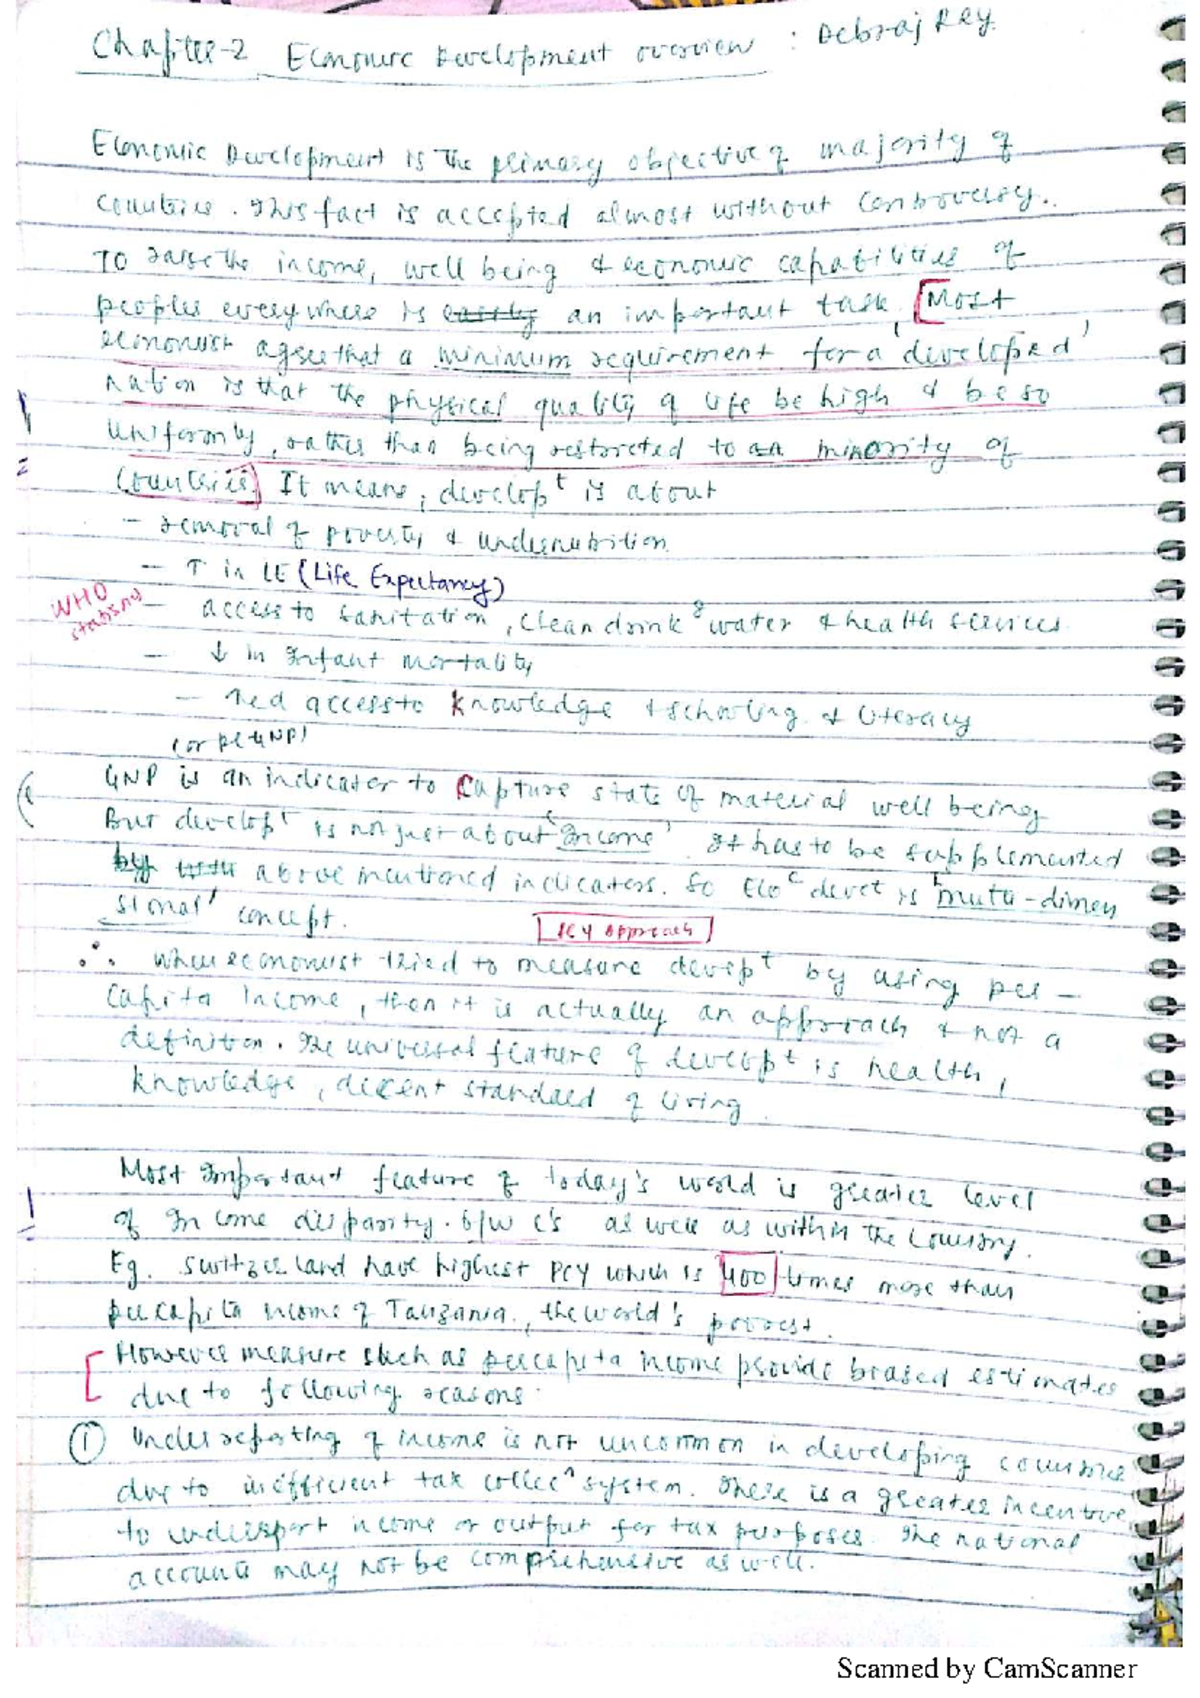 Chapter-2 Economic Development overview : Debraj Ray
Economic Development is the primary objective of majority of
countries. This fact is accepted almost without controversy..
To raise the income, well being & economic capabilities of
peoples everywhere is easily an important task. [Most
economist agree that a minimum requirement for a 'developed'
nation is that the physical quality of life be high & be so
uniformly, rather than being restricted to an minority of
countries] It means, develop^t is about
- removal of poverty & undernutrition
- ↑ in LE (Life Expectancy)
WHO
- access to sanitation, clean drink^g water & health services
- ↓ in Infant mortality
- ↑ed access to knowledge & schooling & literacy
(or pc GNP)
GNP is an indicator to capture state of material well being
But develop^t is not just about 'Income'. It has to be supplemented
by above mentioned indicators. So Eco^c devet is 'multi-dimen
sional' concept.
PCY Approach
∴ when economist tried to measure devep^t by using per-
capita Income, then it is actually an approach & not a
definition. The universal feature of develop^t is health,
knowledge, decent standard of living.
Most Important feature of today's world is greater level
of Income disparity. b/w C's as well as within the country.
Eg. Switzerland have highest PCY which is 400 times more than
per capita income of Tanzania., the world's poorest.
[However measure such as percapita income provide biased estimates
due to following reasons:
① Under reporting of income is not uncommon in developing countries
due to inefficient tax collec^n system. There is a greater incentive
to underreport income or output for tax purposes. The national
accounts may not be comprehensive as well.
Scanned by CamScanner